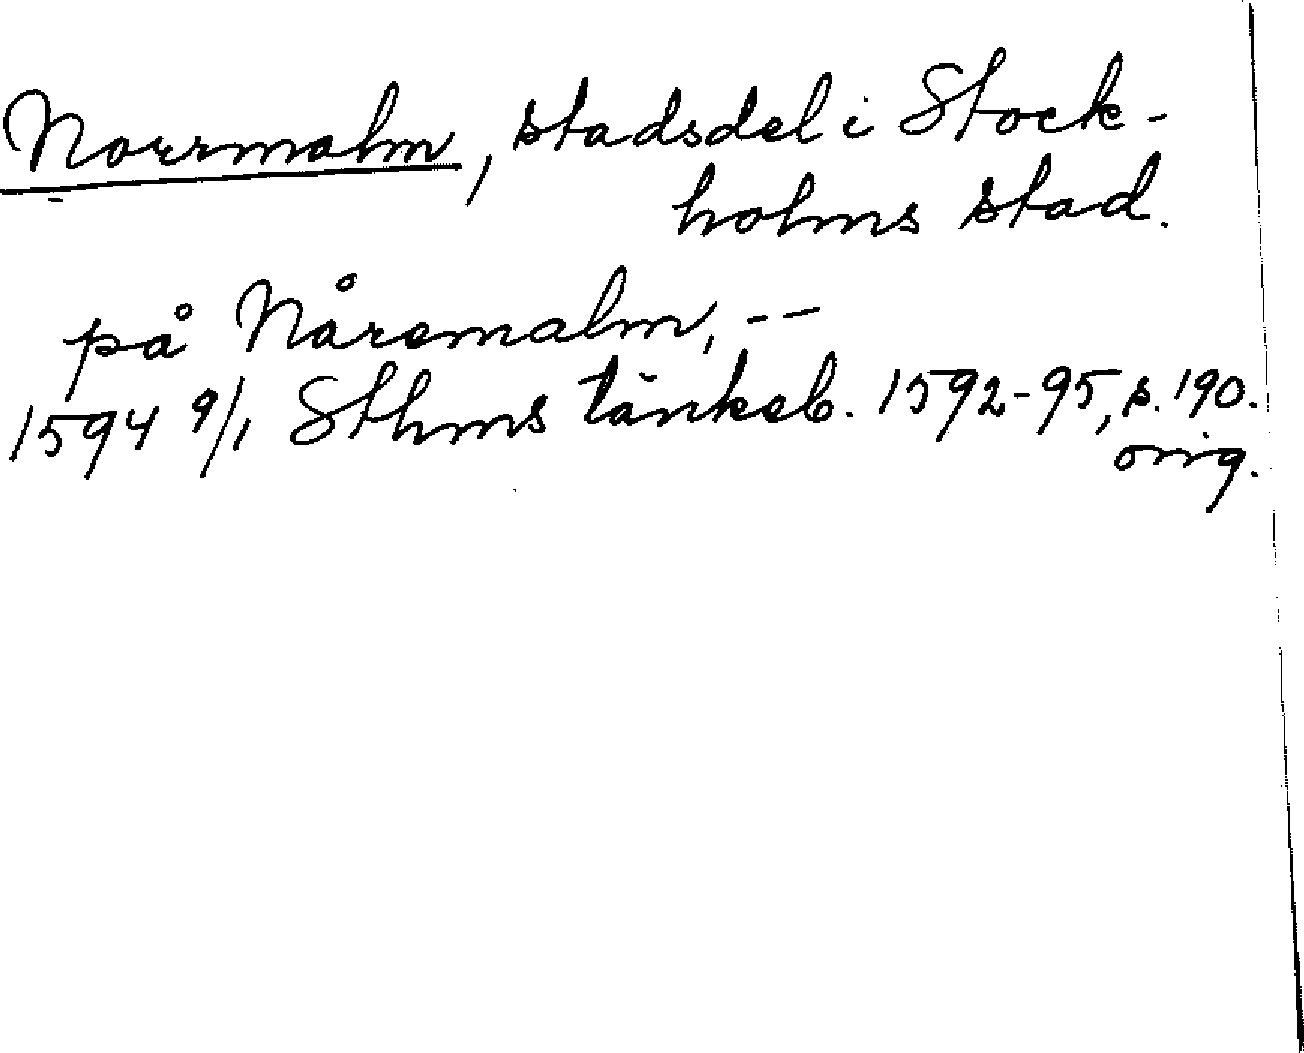 Norrmalm, stadsdel i Stock-
holms stad.
på Nåremalm, --
1594 9/1 Sthms tänkeb. 1592-95, s. 190.
orig.